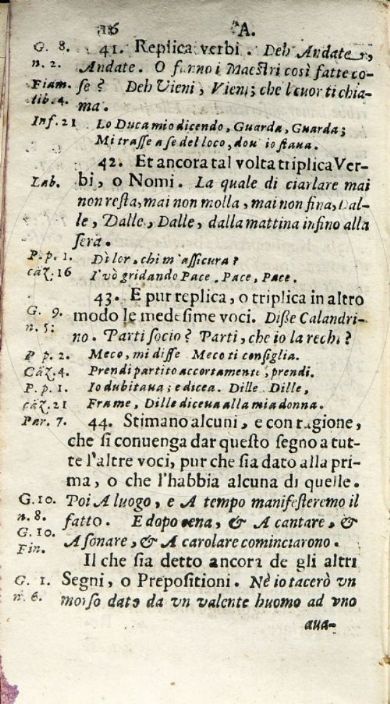 16 A.
G. 8. 41. Replica verbi. Deh Andate,
n. 2. Andate. O fanno i Maestri così fatte co-
Fiam. se? Deh Vieni, Vieni; che l'cuor ti chia-
lib. 4. ma.
Inf. 21 Lo Duca mio dicendo, Guarda, Guarda;
Mi trasse a se del loco, dou' io staua.
42. Et ancora tal volta triplica Ver-
Lab. bi, o Nomi. La quale di ciarlare mai
non resta, mai non molla, mai non fina, Dal-
le, Dalle, Dalle, dalla mattina infino alla
sera.
P. p. 1. Di lor, chi m'assicura?
cāz. 16 I'vò gridando Pace, Pace, Pace.
43. E pur replica, o triplica in altro
G. 9. modo le medesime voci. Disse Calandri-
n. 5: no. Parti socio? Parti, che io la rechi?
P p. 2. Meco, mi disse Meco ti consiglia.
Cāz. 4. Prendi partito accortamente, prendi.
P. p. 1. Io dubitaua; e dicea. Dille Dille,
cāz. 21 Frame, Dille diceua alla mia donna.
Par. 7. 44. Stimano alcuni, e con ragione,
che si conuenga dar questo segno a tut-
te l'altre voci, pur che sia dato alla pri-
ma, o che l'habbia alcuna di quelle.
G. 10. Poi A luogo, e A tempo manifesteremo il
n. 8. fatto. E dopo cena, & A cantare, &
G. 10. A sonare, & A carolare cominciarono.
Fin. Il che sia detto ancora de gli altri
G. 1. Segni, o Prepositioni. Nè io tacerò vn
n. 6. morso dato da vn valente huomo ad vno
aua-